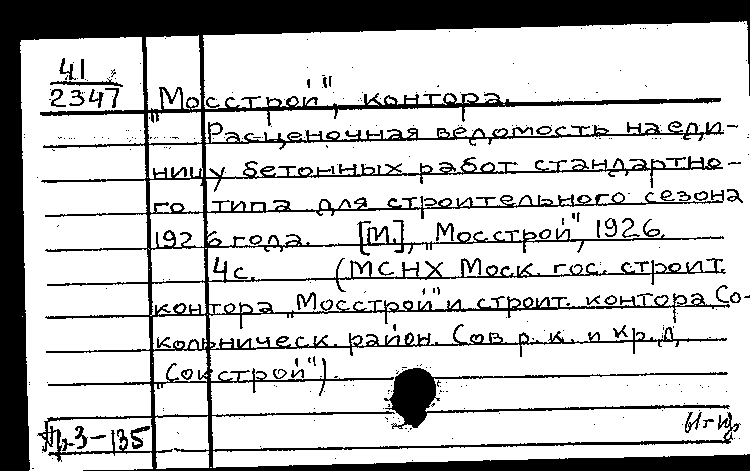 41
2347
„Мосстрой", контора.
Расценочная ведомость на еди-
ницу бетонных работ стандартно-
го типа для строительного сезона
1926 года. [М.], „Мосстрой", 1926.
4 с. (МСНХ Моск. гос. строит.
контора „Мосстрой" и строит. контора Со-
кольническ. район. Сов. р. к. и кр. д.
„Сокстрой").
3-135